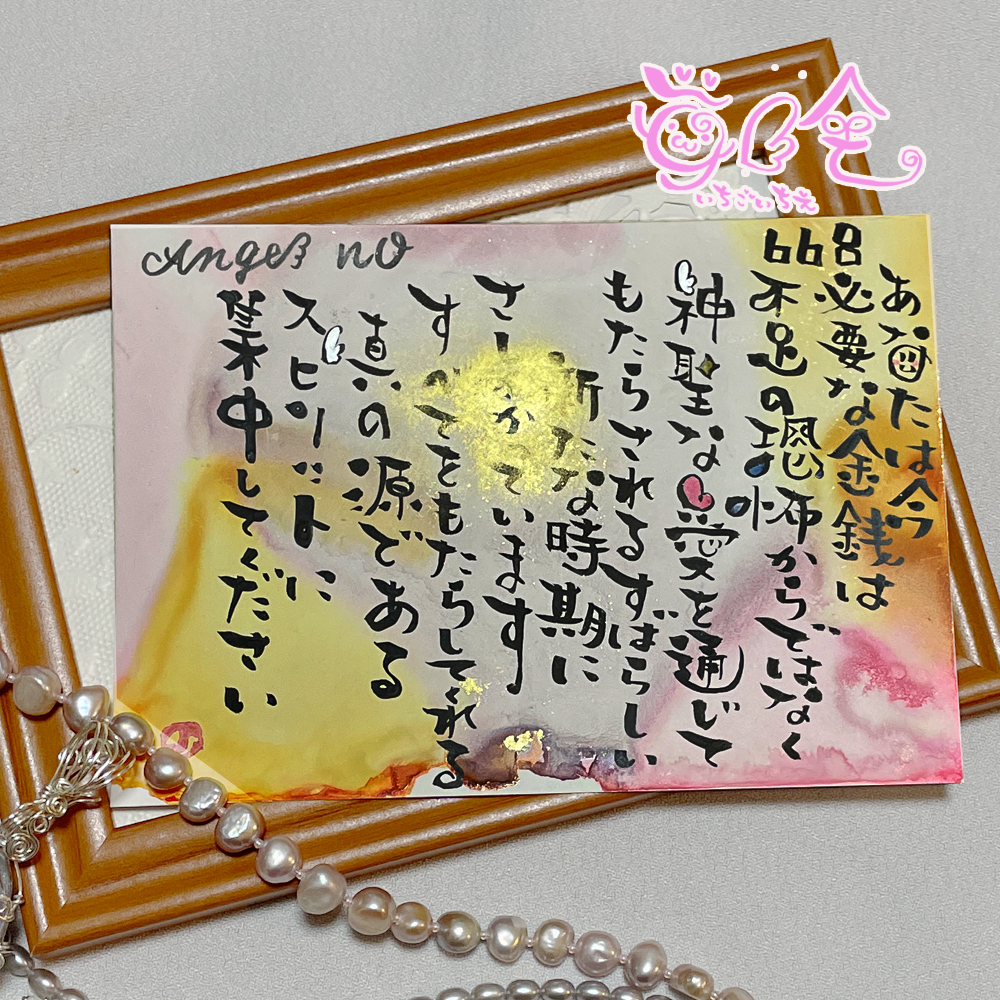 いちごいちえ
Angel nO
668
あなたは今
必要な金銭は
不足の恐怖からではなく
神聖な愛を通じて
もたらされるすばらしい
新たな時期に
さしかかっています
すべてをもたらしてくれる
真の源である
スピリットに
集中してください